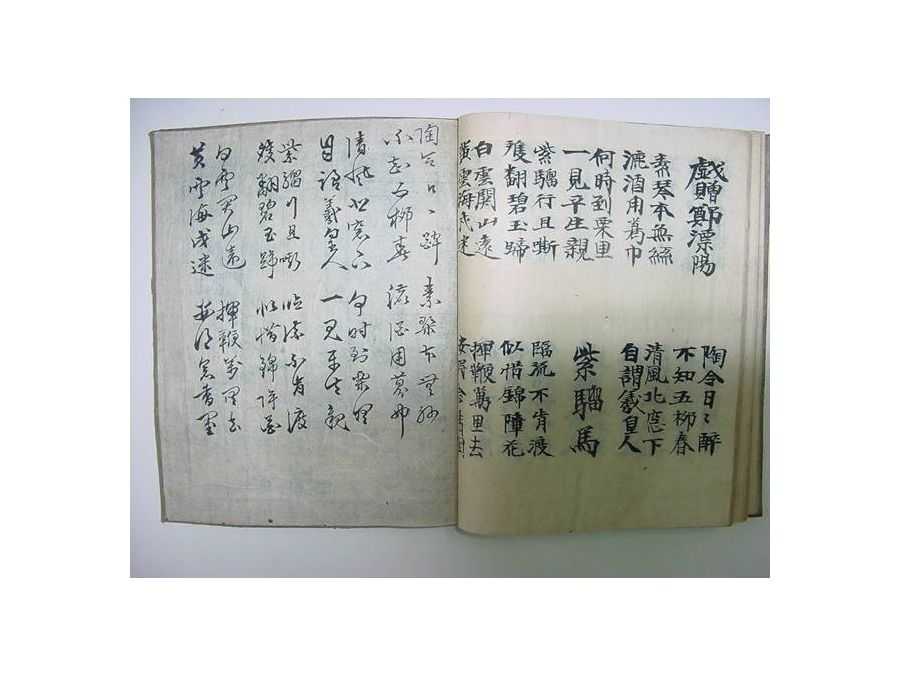 戲贈鄭溧陽
陶令日々醉
不知五柳春
素琴本無絲
漉酒用葛巾
清風北窓下
自謂羲皇人
何時到栗里
一見平生親
紫騮馬
紫騮行且嘶
雙翻碧玉蹄
臨流不肯渡
似惜錦障泥
白雲關山遠
黃雲海戍迷
揮鞭萬里去
安得念春閨
陶令日々醉 素琴本無絲
不知五柳春 漉酒用葛巾
清風北窓下 何時到栗里
自謂羲皇人 一見平生親
紫騮行且嘶 臨流不肯渡
雙翻碧玉蹄 似惜錦障泥
白雲關山遠 揮鞭萬里去
黃雲海戍迷